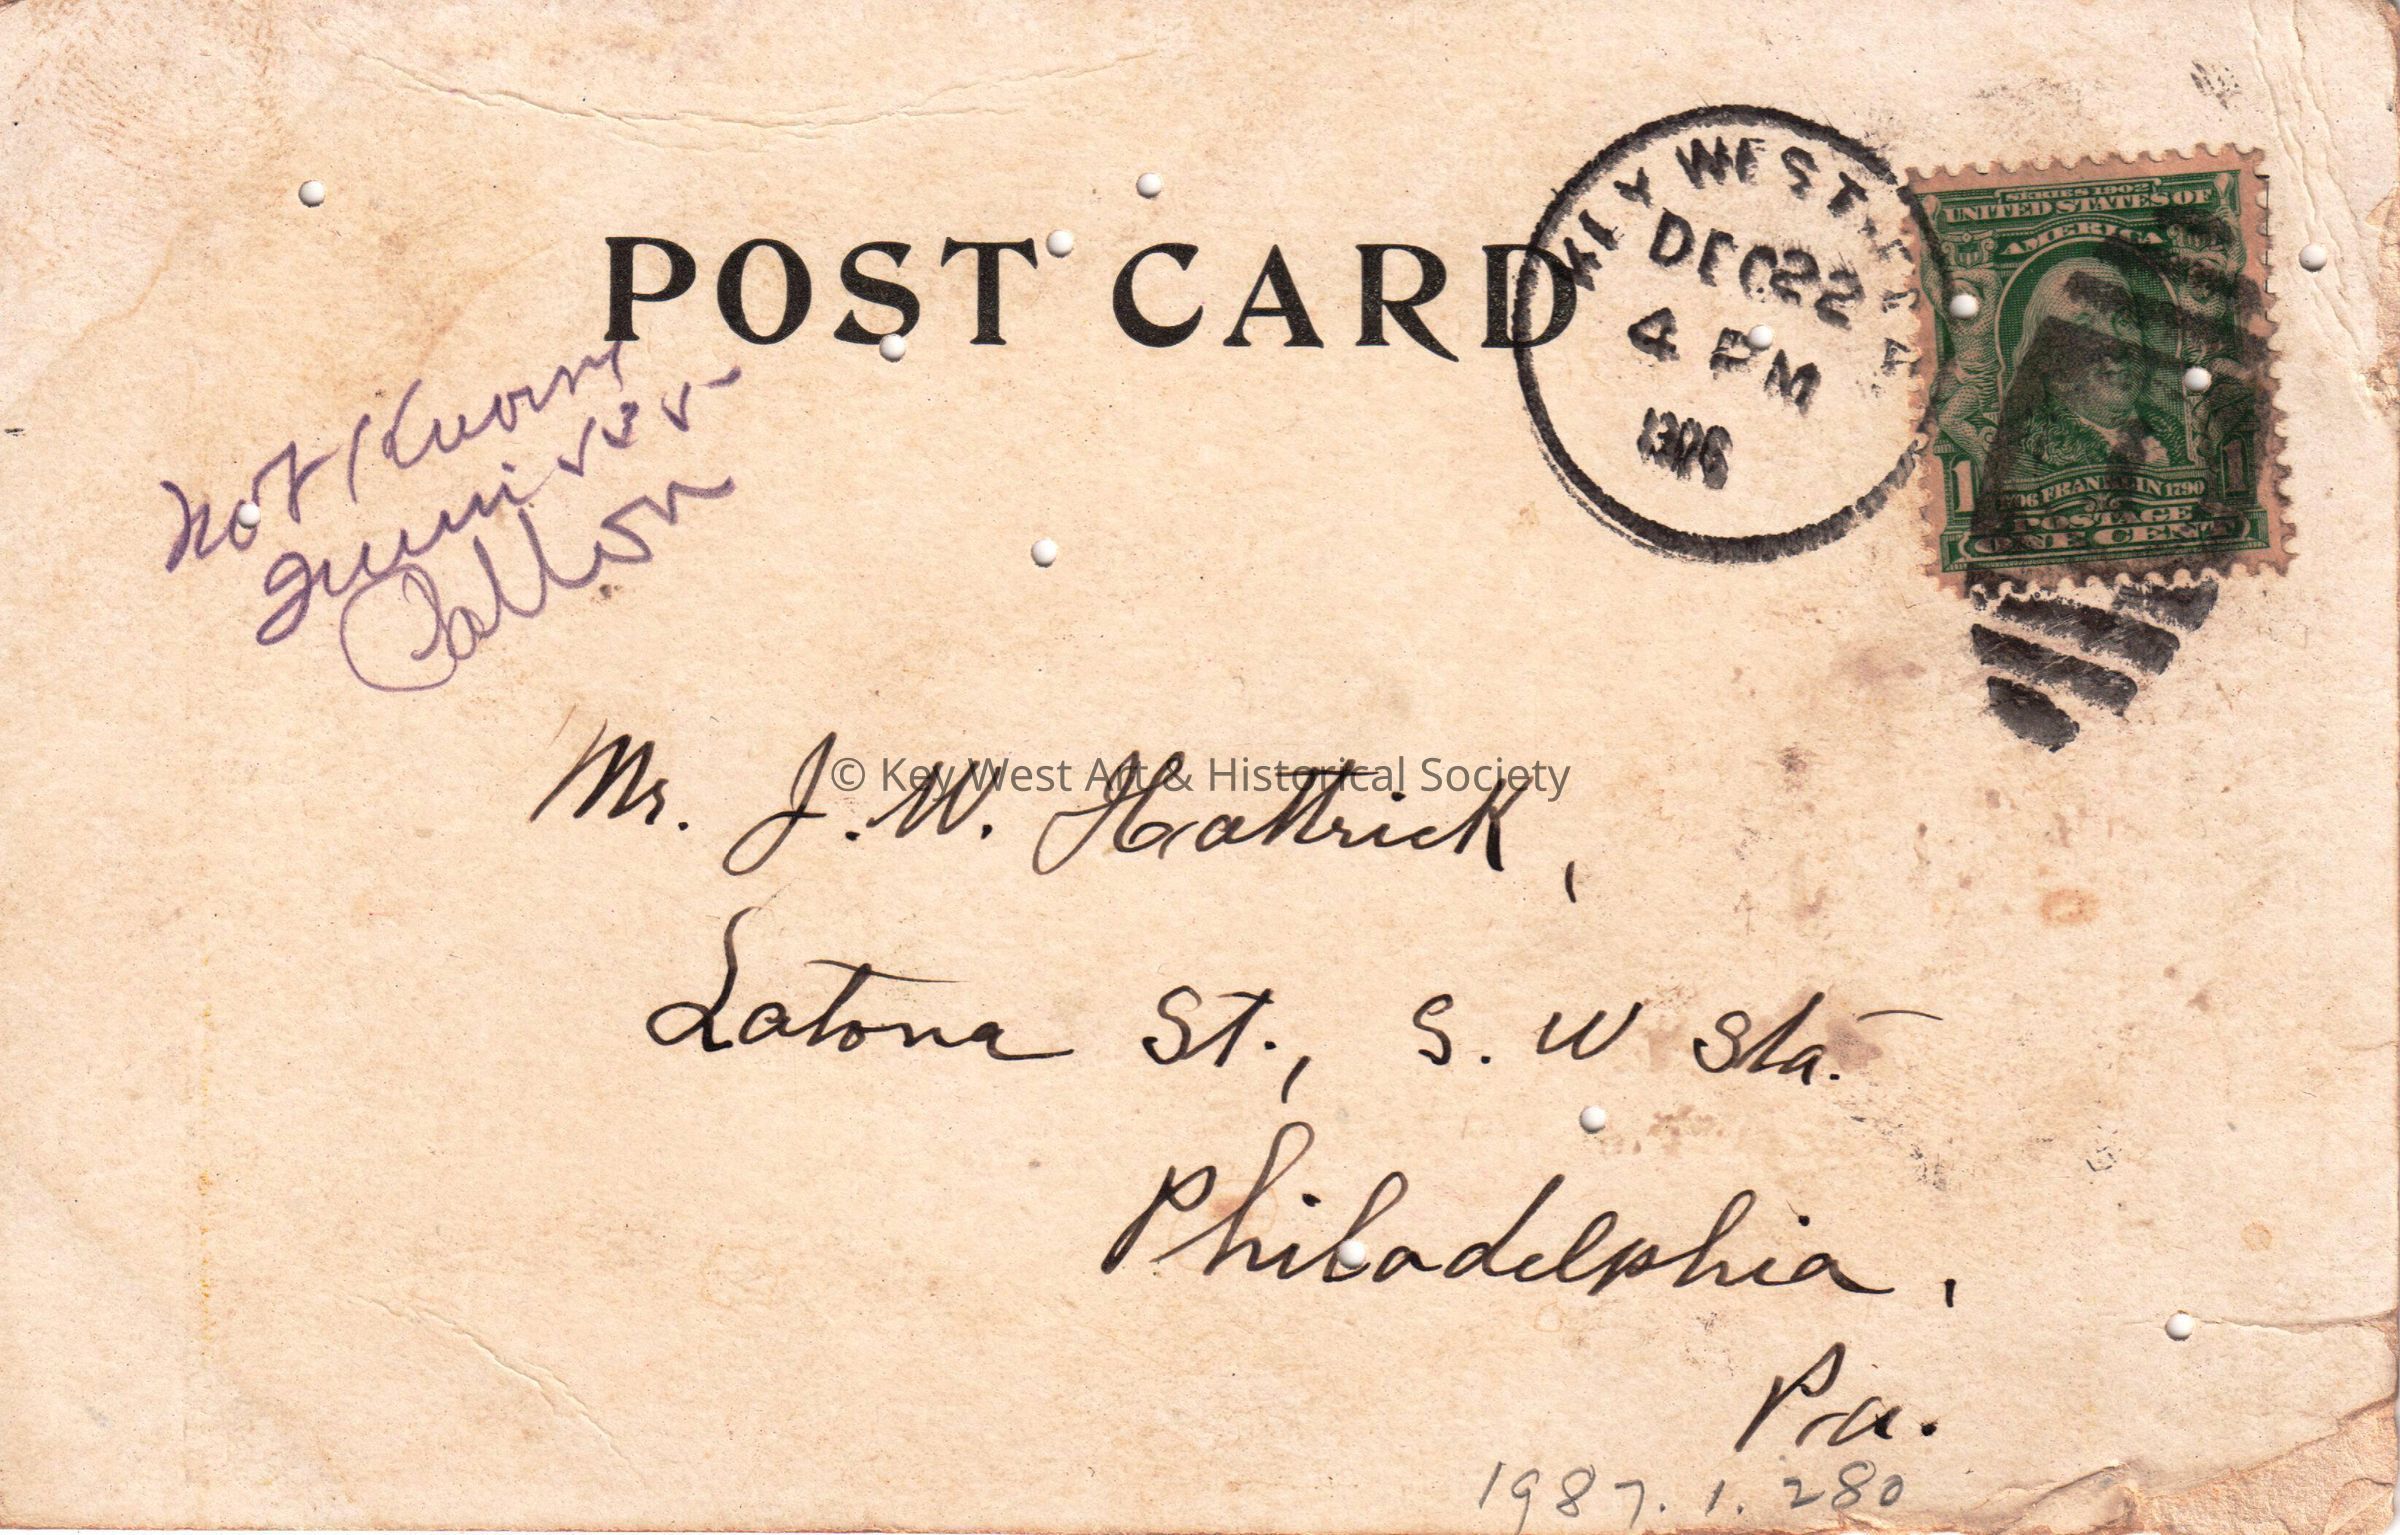 POST CARD
KEY WEST. FLA
DEC 22
4 PM
1906
SERIES 1902
UNITED STATES OF
AMERICA
1706 FRANKLIN 1790
POSTAGE
1 ONE CENT 1
Not Known
Mr. J. W. Hattrick,
Latona St., S. W Sta.
Philadelphia,
Pa.
1987.1.280
© Key West Art & Historical Society